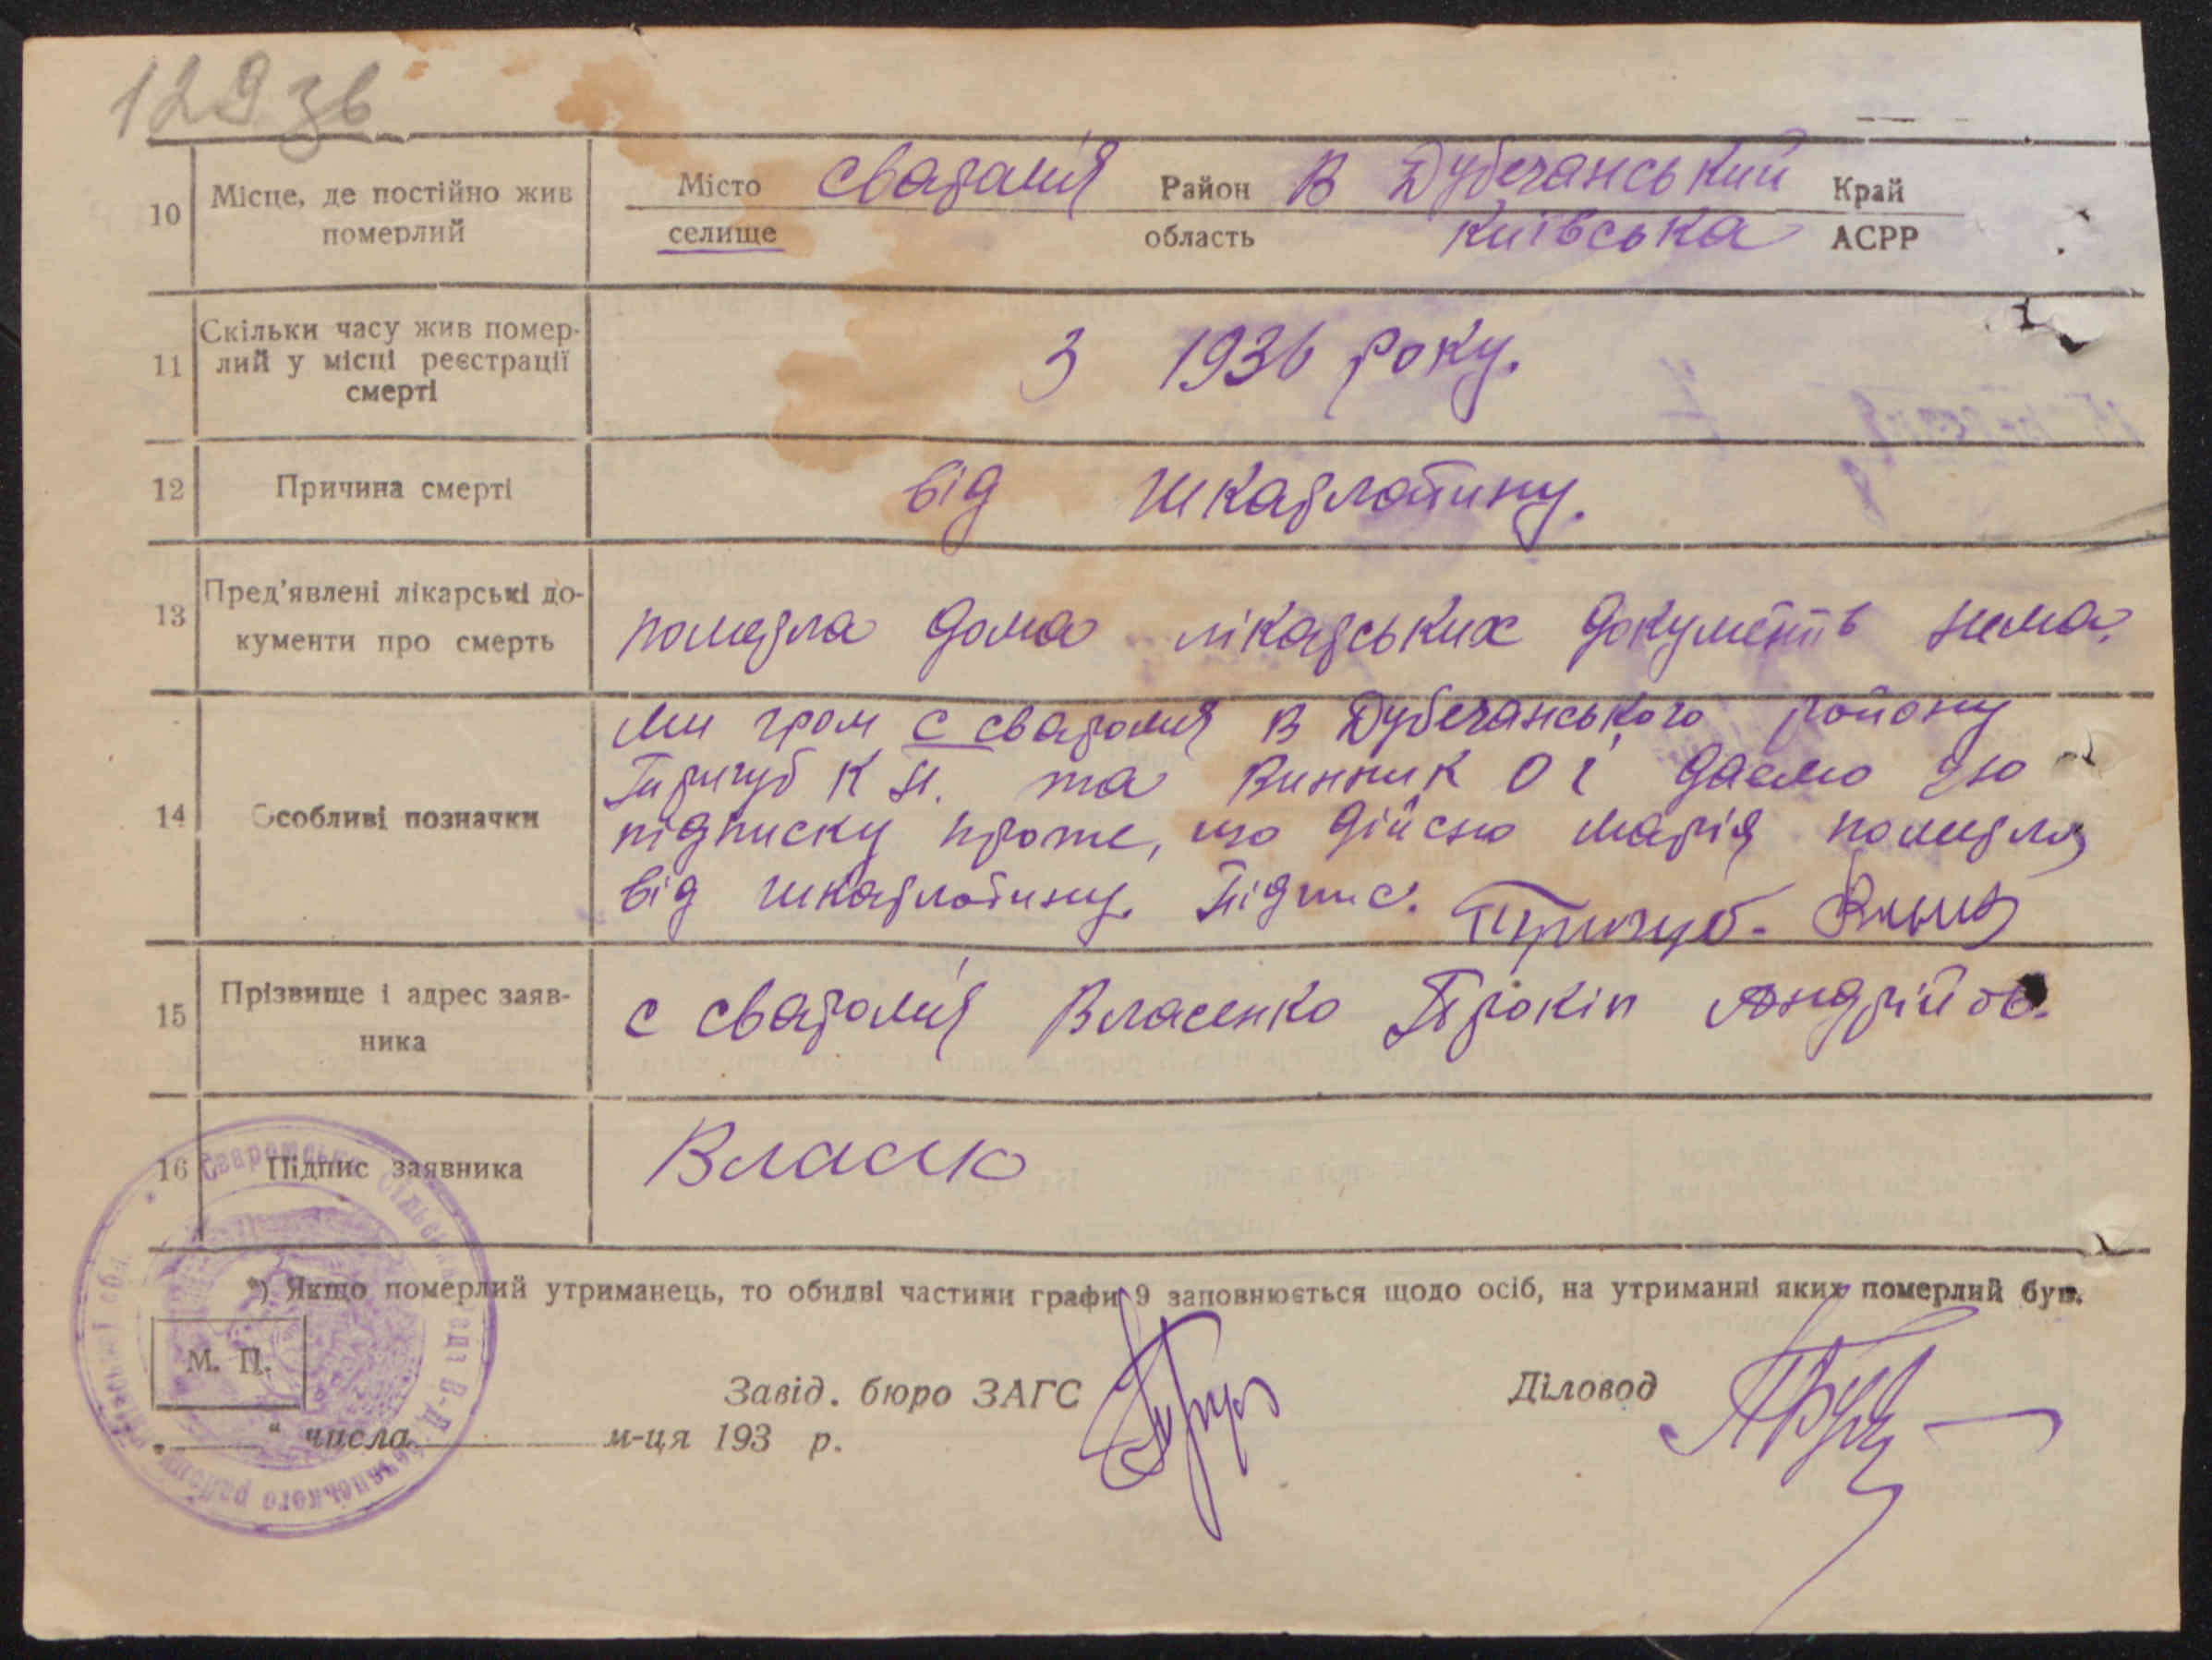 129 зв
10 Місце, де постійно жив померлий
Місто селище Сваромїя Район В Дубечанський Край
область Київська АСРР
11 Скільки часу жив помер-
лий у місці реєстрації
смерті
З 1936 року.
12 Причина смерті
від шкарлатину.
13 Пред'явлені лікарські до-
кументи про смерть
померла дома лікарських документів нема.
14 Особливі позначки
Ми гром с Сваромїя В Дубечанського району
К Н. та Винник О І даємо цю
підписку проте, що дійсно Марія померла
від шкарлатину. Підпис.
15 Прізвище і адрес заяв-
ника
с Сваромїя Власенко Прокіп Андрійов.
16 Підпис заявника
*) Якщо померлий утриманець, то обидві частини графи 9 заповнюється щодо осіб, на утриманні яких померлий був.
М. П.
Завід. бюро ЗАГС
Діловод
„ “ числа м-ця 193 р.